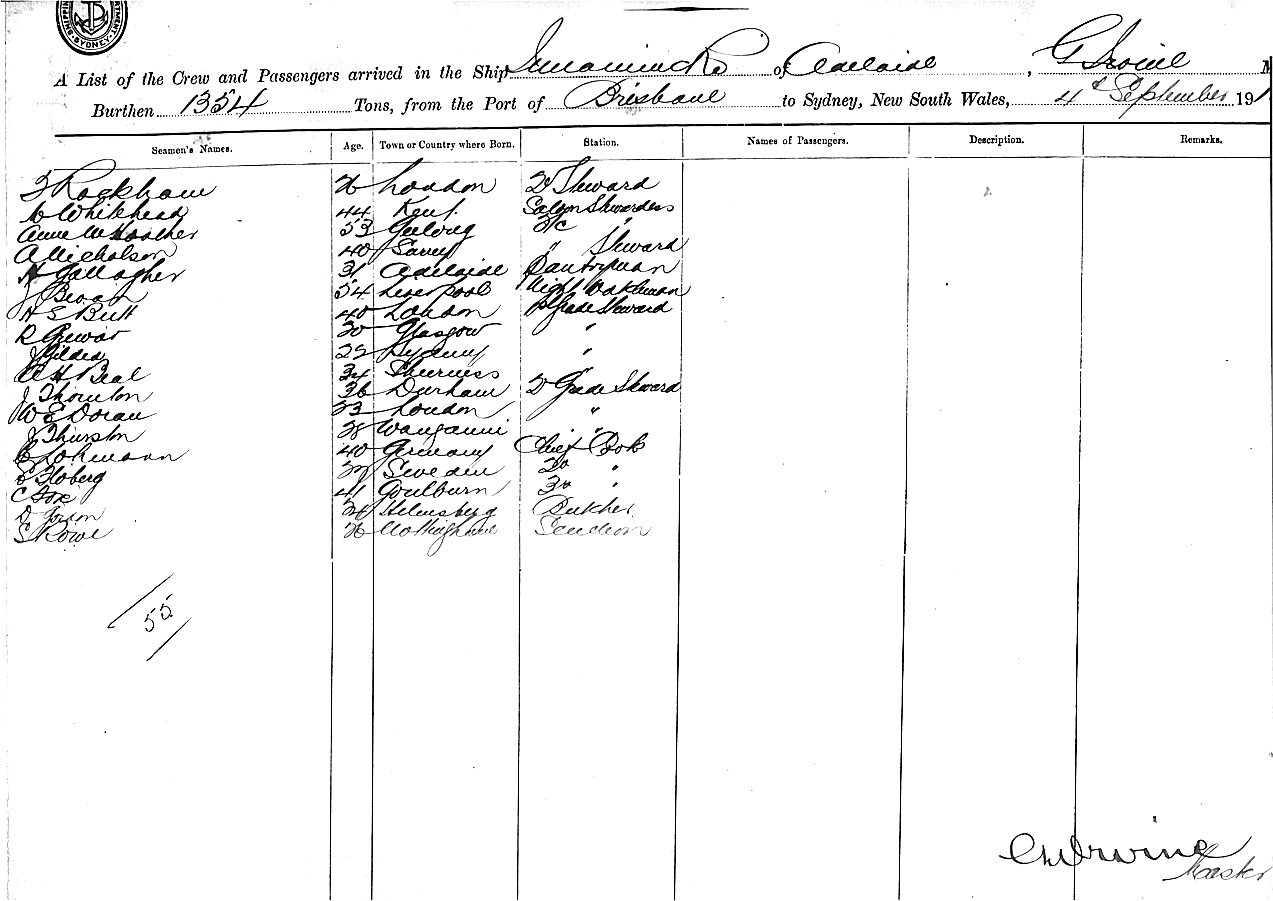 SYDNEY
A List of the Crew and Passengers arrived in the Ship Innamincka of Adelaide, G Irvine M
Burthen 1354 Tons, from the Port of Brisbane to Sydney, New South Wales, 4th September 191
Seamen's Names. Age. Town or Country where Born. Station. Names of Passengers. Description. Remarks.
Rackham 26 London 2d Steward
Whitehead 44 Kent Saloon Stewardess
Annie 53 Geelong 2/c "
A Nicholson 40 Surrey " Steward
H Gallagher 31 Adelaide Pantryman
J Bevan 54 Liverpool Night Watchman
H E Butt 40 London 1st Grade Steward
R Gewar 30 Glasgow "
J Gildea 22 Sydney "
A H Beal 34 Sheerness
J Thornton 36 Durham 2d Grade Steward
W E Doran 23 London "
J Thurston 28 Wanganui "
Lohmann 40 Germany Chief Cook
Floberg Sweden 2d "
C Fox 41 Goulburn 3d "
D Helensburg Butcher
S Rowe 26 Nottingham
55
Irvine
Master